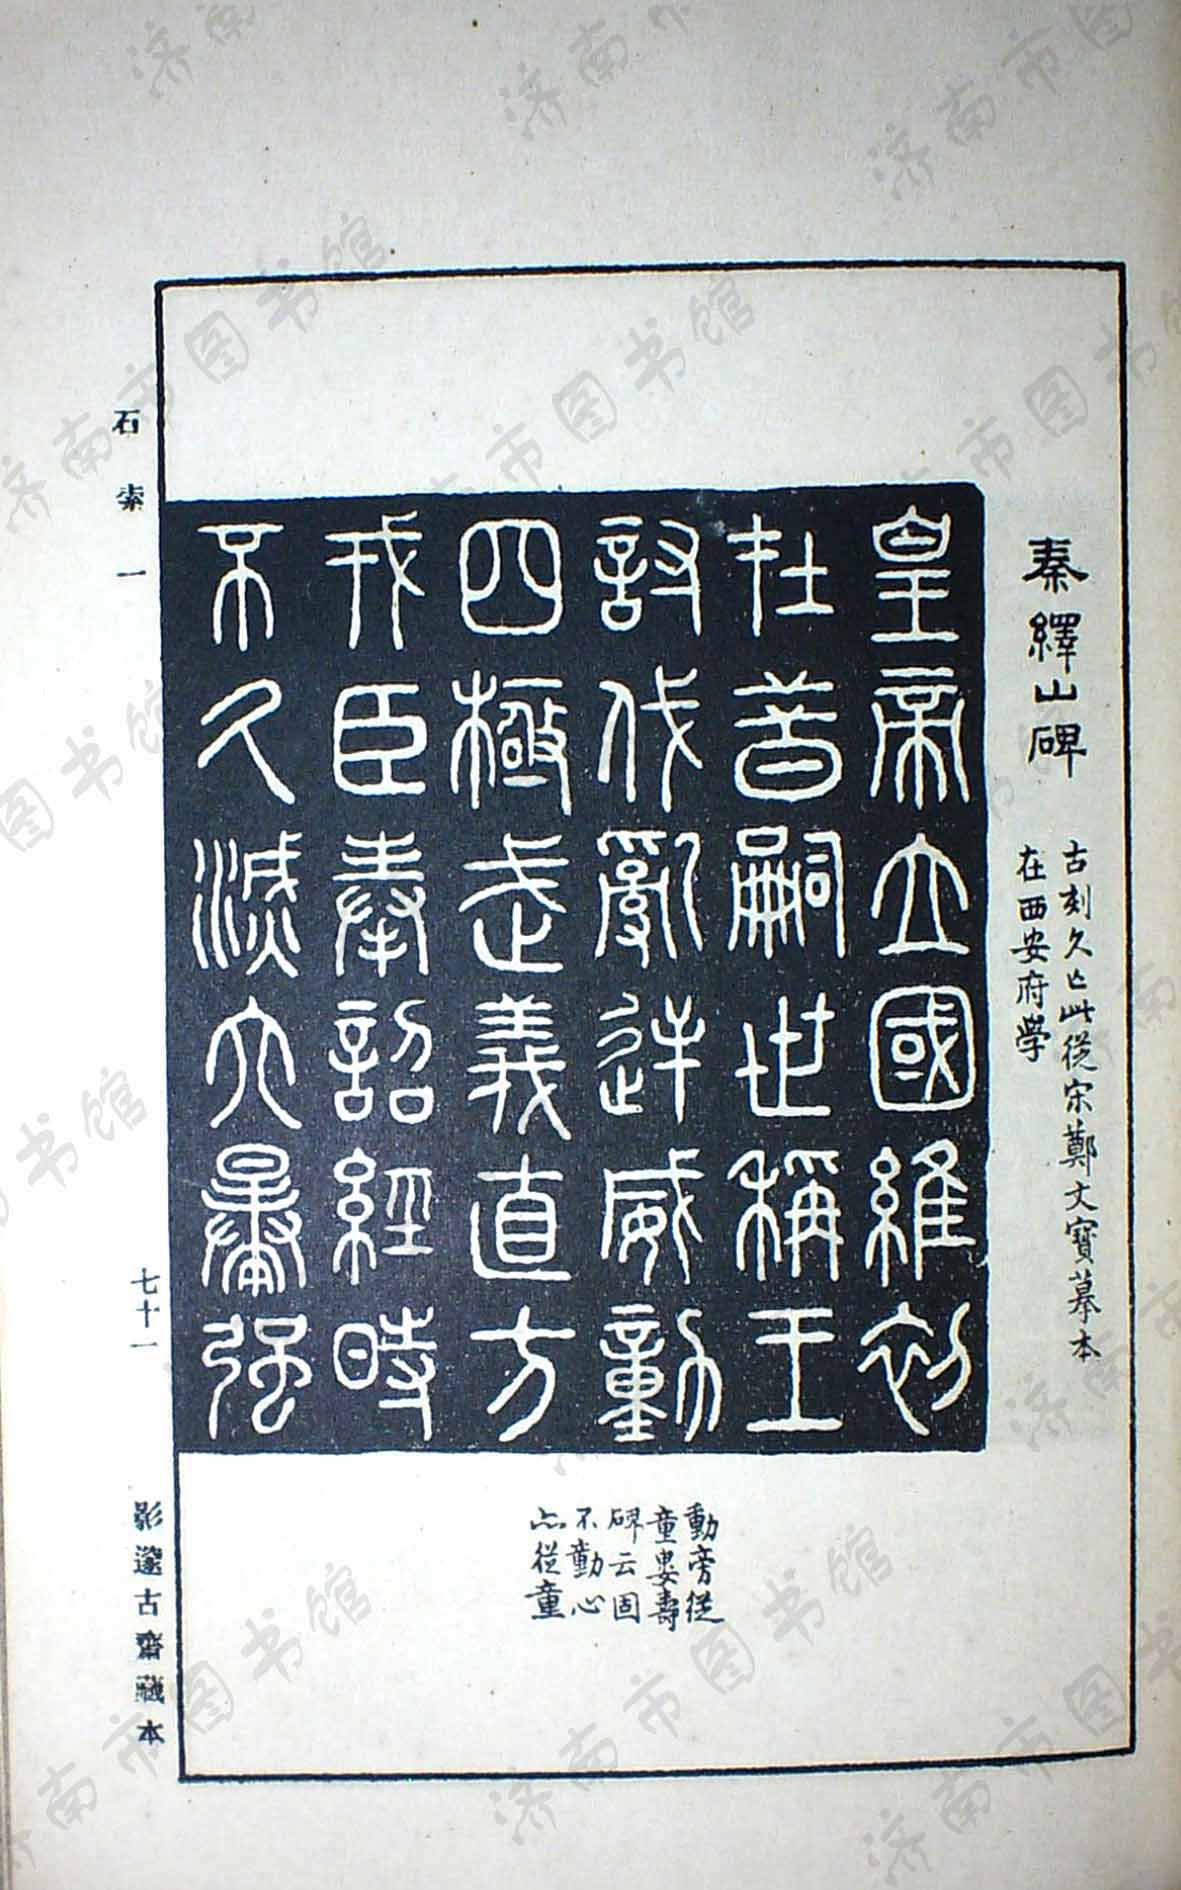 秦繹山碑
古刻久亡此從宋鄭文寶摹本
在西安府學
皇帝立國維初
在昔嗣世稱王
討伐亂逆威動
四極武義直方
戎臣奉詔經時
不久滅六暴強
動旁從
童婁壽
碑云固
不動心
亦從童
石索一
七十一
影邃古齋藏本
济南市图书馆